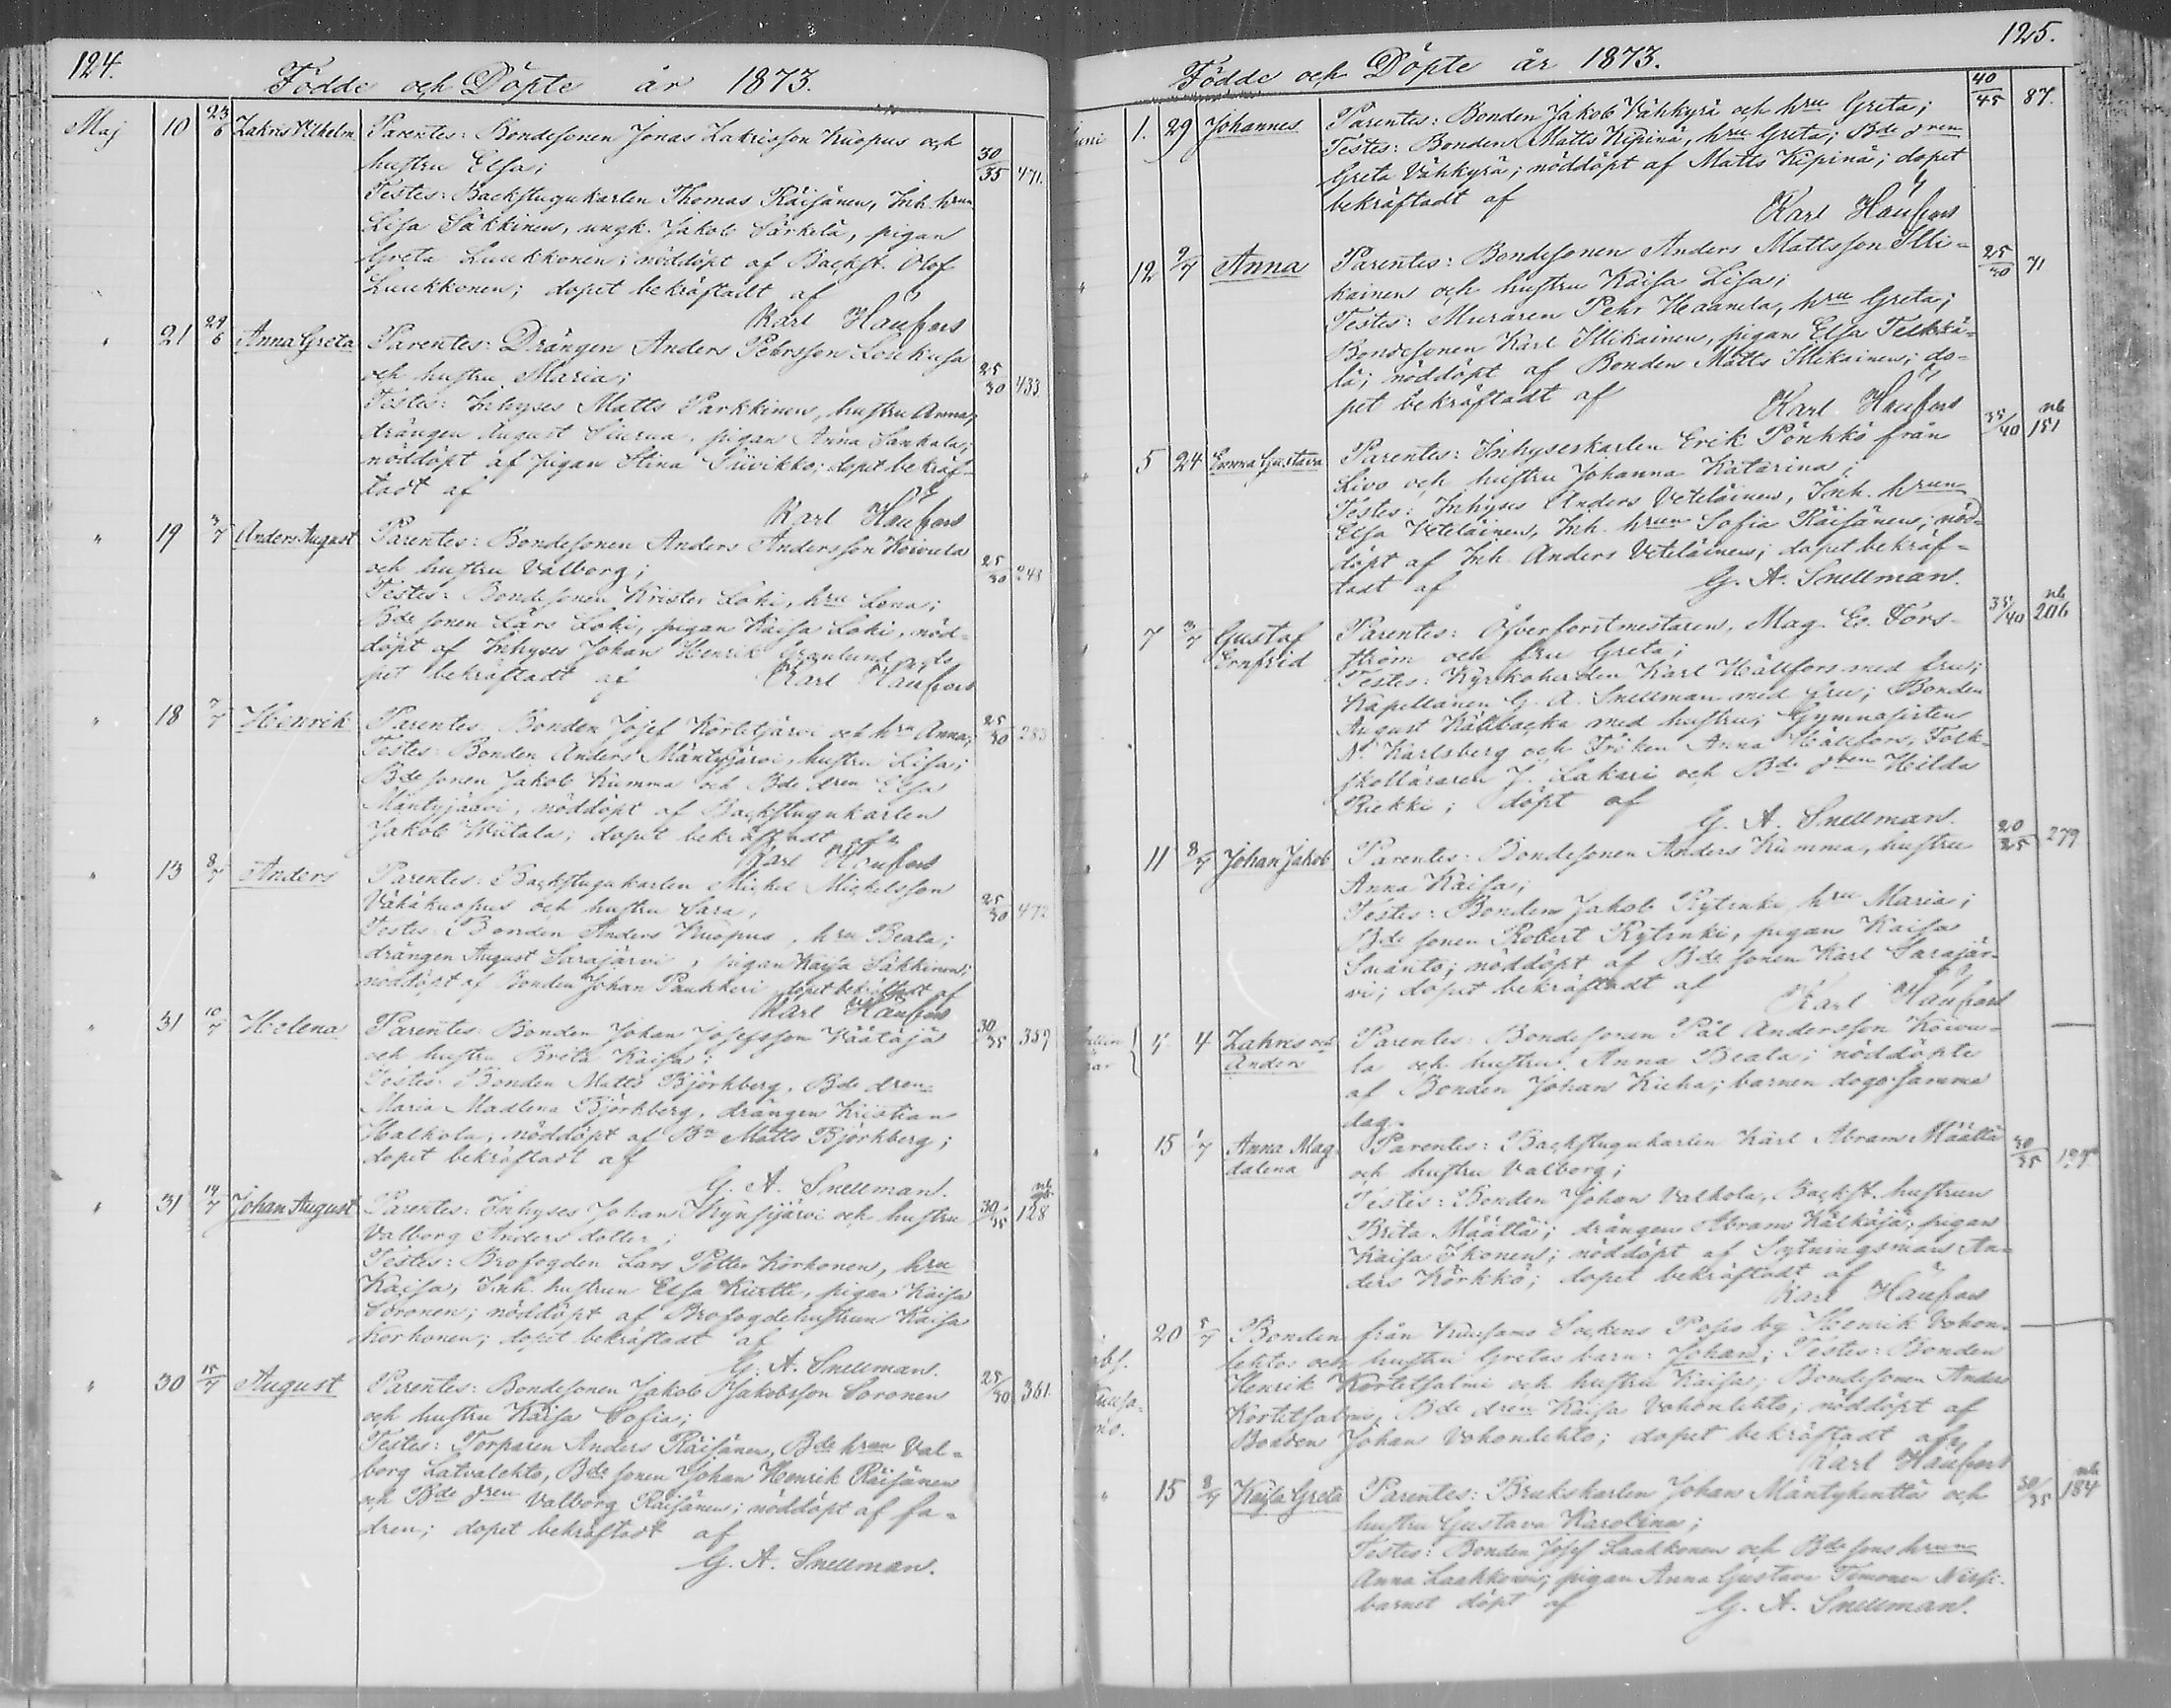 124.
Födde och Döpte år 1873.
Maj 10 23/6 Zakris Vilhelm Parentes: Bondesonen Jonas Zakrisson Kuopus och
hustru Elsa; 30/35 471.
Testes: Backstugukarlen Thomas Räisänen, Inh. hrun
Lisa Säkkinen, ungk. Jakob Särkelä, pigan
Greta Luukkonen; nöddöpt af Backst. Olof
Luukkonen; dopet bekräftadt af
Karl Hällfors
" 21 24/6 Anna Greta Parentes: Drängen Anders Pehrsson Loukusa
och hustru Maria; 25/30 433.
Testes: Inhyses Matts Parkkinen, hustru Anna;
drängen August Siurua, pigan Anna Sankala;
nöddöpt af pigan Stina Siivikko; dopet bekräf-
tadt af
Karl Hällfors
" 19 3/7 Anders August Parentes: Bondesonen Anders Andersson Koivula
och hustru Valborg; 25/30 248
Testes: Bondesonen Krister Loki, hru Lena;
Bde sonen Lars Loki, pigan Kaisa Loki, nöd-
döpt af Inhyses Johan Henrik Granlund, do
pet bekräftadt af Karl Hällfors
" 18 7/7 Henrik Parentes: Bonden Josef Kortetjärvi och hru Anna; 25/30 283
Testes: Bonden Anders Mäntyjärvi, hustru Lisa;
Bde sonen Jakob Kumma och Bde dren Elsa
Mäntyjäävi, nöddöpt af Backstugukarlen
Jakob Wiitala; dopet bekräftadt af
Karl Hällfors
" 13 8/7 Anders Parentes: Backstugukarlen Mickel Mickelsson
Vähäkuopus och hustru Sara; 25/30 472
Testes: Bonden Anders Kuopus, hru Beata;
drängen August Sarajärvi, pigan Kaisa Säkkinen;
nöddöpt af Bonden Johan Paukkeri dopet bekräftadt af
Karl Hällfors
" 31 10/7 Helena Parentes: Bonden Johan Josefsson Väätäjä 30/35 359
och hustru Brita Kaisa;
Testes: Bonden Matts Björkberg, Bde dren
Maria Madlena Björkberg, drängen Kristian
Halkola, nöddöpt af Bn Matts Björkberg;
dopet bekräftadt af
G. A. Snellman.
" 31 14/7 Johan August Parentes: Inhyses Johan Kynsijärvi och hustru 30/35 128
Valborg Anders dotter;
Testes: Brofogden Lars Petter Korhonen, hru
Kaisa, Inh. hustrun Elsa Kurtti, pigan Kaisa
Soronen; nöddöpt af Brofogdehustrun Kaisa
Korhonen; dopet bekräftadt af
G. A. Snellman.
" 30 15/7 August Parentes: Bondesonen Jakob Jakobsson Soronen 25/30 361.
och hustru Kaisa Sofia;
Testes: Torparen Anders Räisänen, Bde hrun Val-
borg Latvalehto, Bde sonen Johan Henrik Räisänen
och Bde dren Valborg Räisänen; nöddöpt af fa-
dren; dopet bekräftadt af
G. A. Snellman.
125.
Födde och Döpte år 1873.
uni 1. 29 Johannes Parentes: Bonden Jakob Vähkyrä och hru Greta; 40/45 87.
Testes: Bonden Matts Kipinä, hru Greta; Bde dren
Greta Vähkyrä; nöddöpt af Matts Kipinä; dopet
bekräftadt af
Karl Hällfors
12 2/7 Anna Parentes: Bondesonen Anders Mattsson Illi- 25/30 71
kainen och hustru Kaisa Lisa;
Testes: Muraren Pehr Haanela, hru Greta;
Bondesonen Karl Illikainen, pigan Elsa Teikkä-
lä; nöddöpt af Bonden Matts Illikainen; do-
pet bekräftadt af
Karl Hällfors
5 24 Emma Gustava Parentes: Inhyseskarlen Erik Pönkkö från 35/40 151
Livo och hustru Johanna Katarina;
Testes: Inhyses Anders Veteläinen, Inh. hrun
Elsa Veteläinen, Inh. hrun Sofia Räisänen; nöd-
döpt af Inh. Anders Veteläinen; dopet bekräf-
tadt af
G. A. Snellman.
7 3/7 Gustaf Ernfrid Parentes: Öfverforstmestaren, Mag. E. Fors- 35/40 206
ström och fru Greta;
Testes: Kyrkoherden Karl Hällfors med fru;
Kapellanen G. A. Snellman med fru; Bonden
August Källbacka med hustru; Gymnasisten
N. Karlsberg och Fröken Anna Hällfors, Folk-
skolläraren J. Lakari och Bde dren Hilda
Riekki; döpt af
G. A. Snellman.
11 8/7 Johan Jakob Parentes: Bondesonen Anders Kumma, hustru 20/25 279
Anna Kaisa;
Testes: Bonden Jakob Rytinki, hru Maria;
Bde sonen Robert Rytinki, pigan Kaisa
Suanto; nöddöpt af Bde sonen Karl Sarajär-
vi; dopet bekräftadt af
Karl Hällfors
4 Zakris och Anders Parentes: Bondesonen Pål Andersson Koivu-
la och hustru Anna Beata; nöddöpte
af Bonden Johan Kieha; barnen dogo samma
dag.
15 1/7 Anna Magdalena Parentes: Backstugukarlen Karl Abram Määttä 30/35
och hustru Valborg;
Testes: Bonden Johan Valkola, Backst. hustrun
Brita Määttä; drängen Abram Kälkäjä, pigan
Kaisa Ikonen; nöddöpt af Sytningsman An-
ders Körkkö; dopet bekräftadt af
Karl Hällfors
20 5/7 Bonden från Kuusamo Sockens Posio by Henrik Vohon-
lehto och hustru Gretas barn: Johan; Testes: Bonden
Henrik Kortetsalmi och hustru Kaisa; Bondesonen Anders
Kortetsalmi, Bde dren Kaisa Vohonlehto; nöddöpt af
Bonden Johan Vohonlehto; dopet bekräftadt af
Karl Hällfors
" 15 Kaisa Greta Parentes: Brukskarlen Johan Mäntykenttä och 30/35 184
hustru Gustava Karolina;
Testes: Bonden Josef Laakkonen och Bde sons hrun
Anna Laakkonen; pigan Anna Gustava Timonen
barnet döpt af
G. A. Snellman.